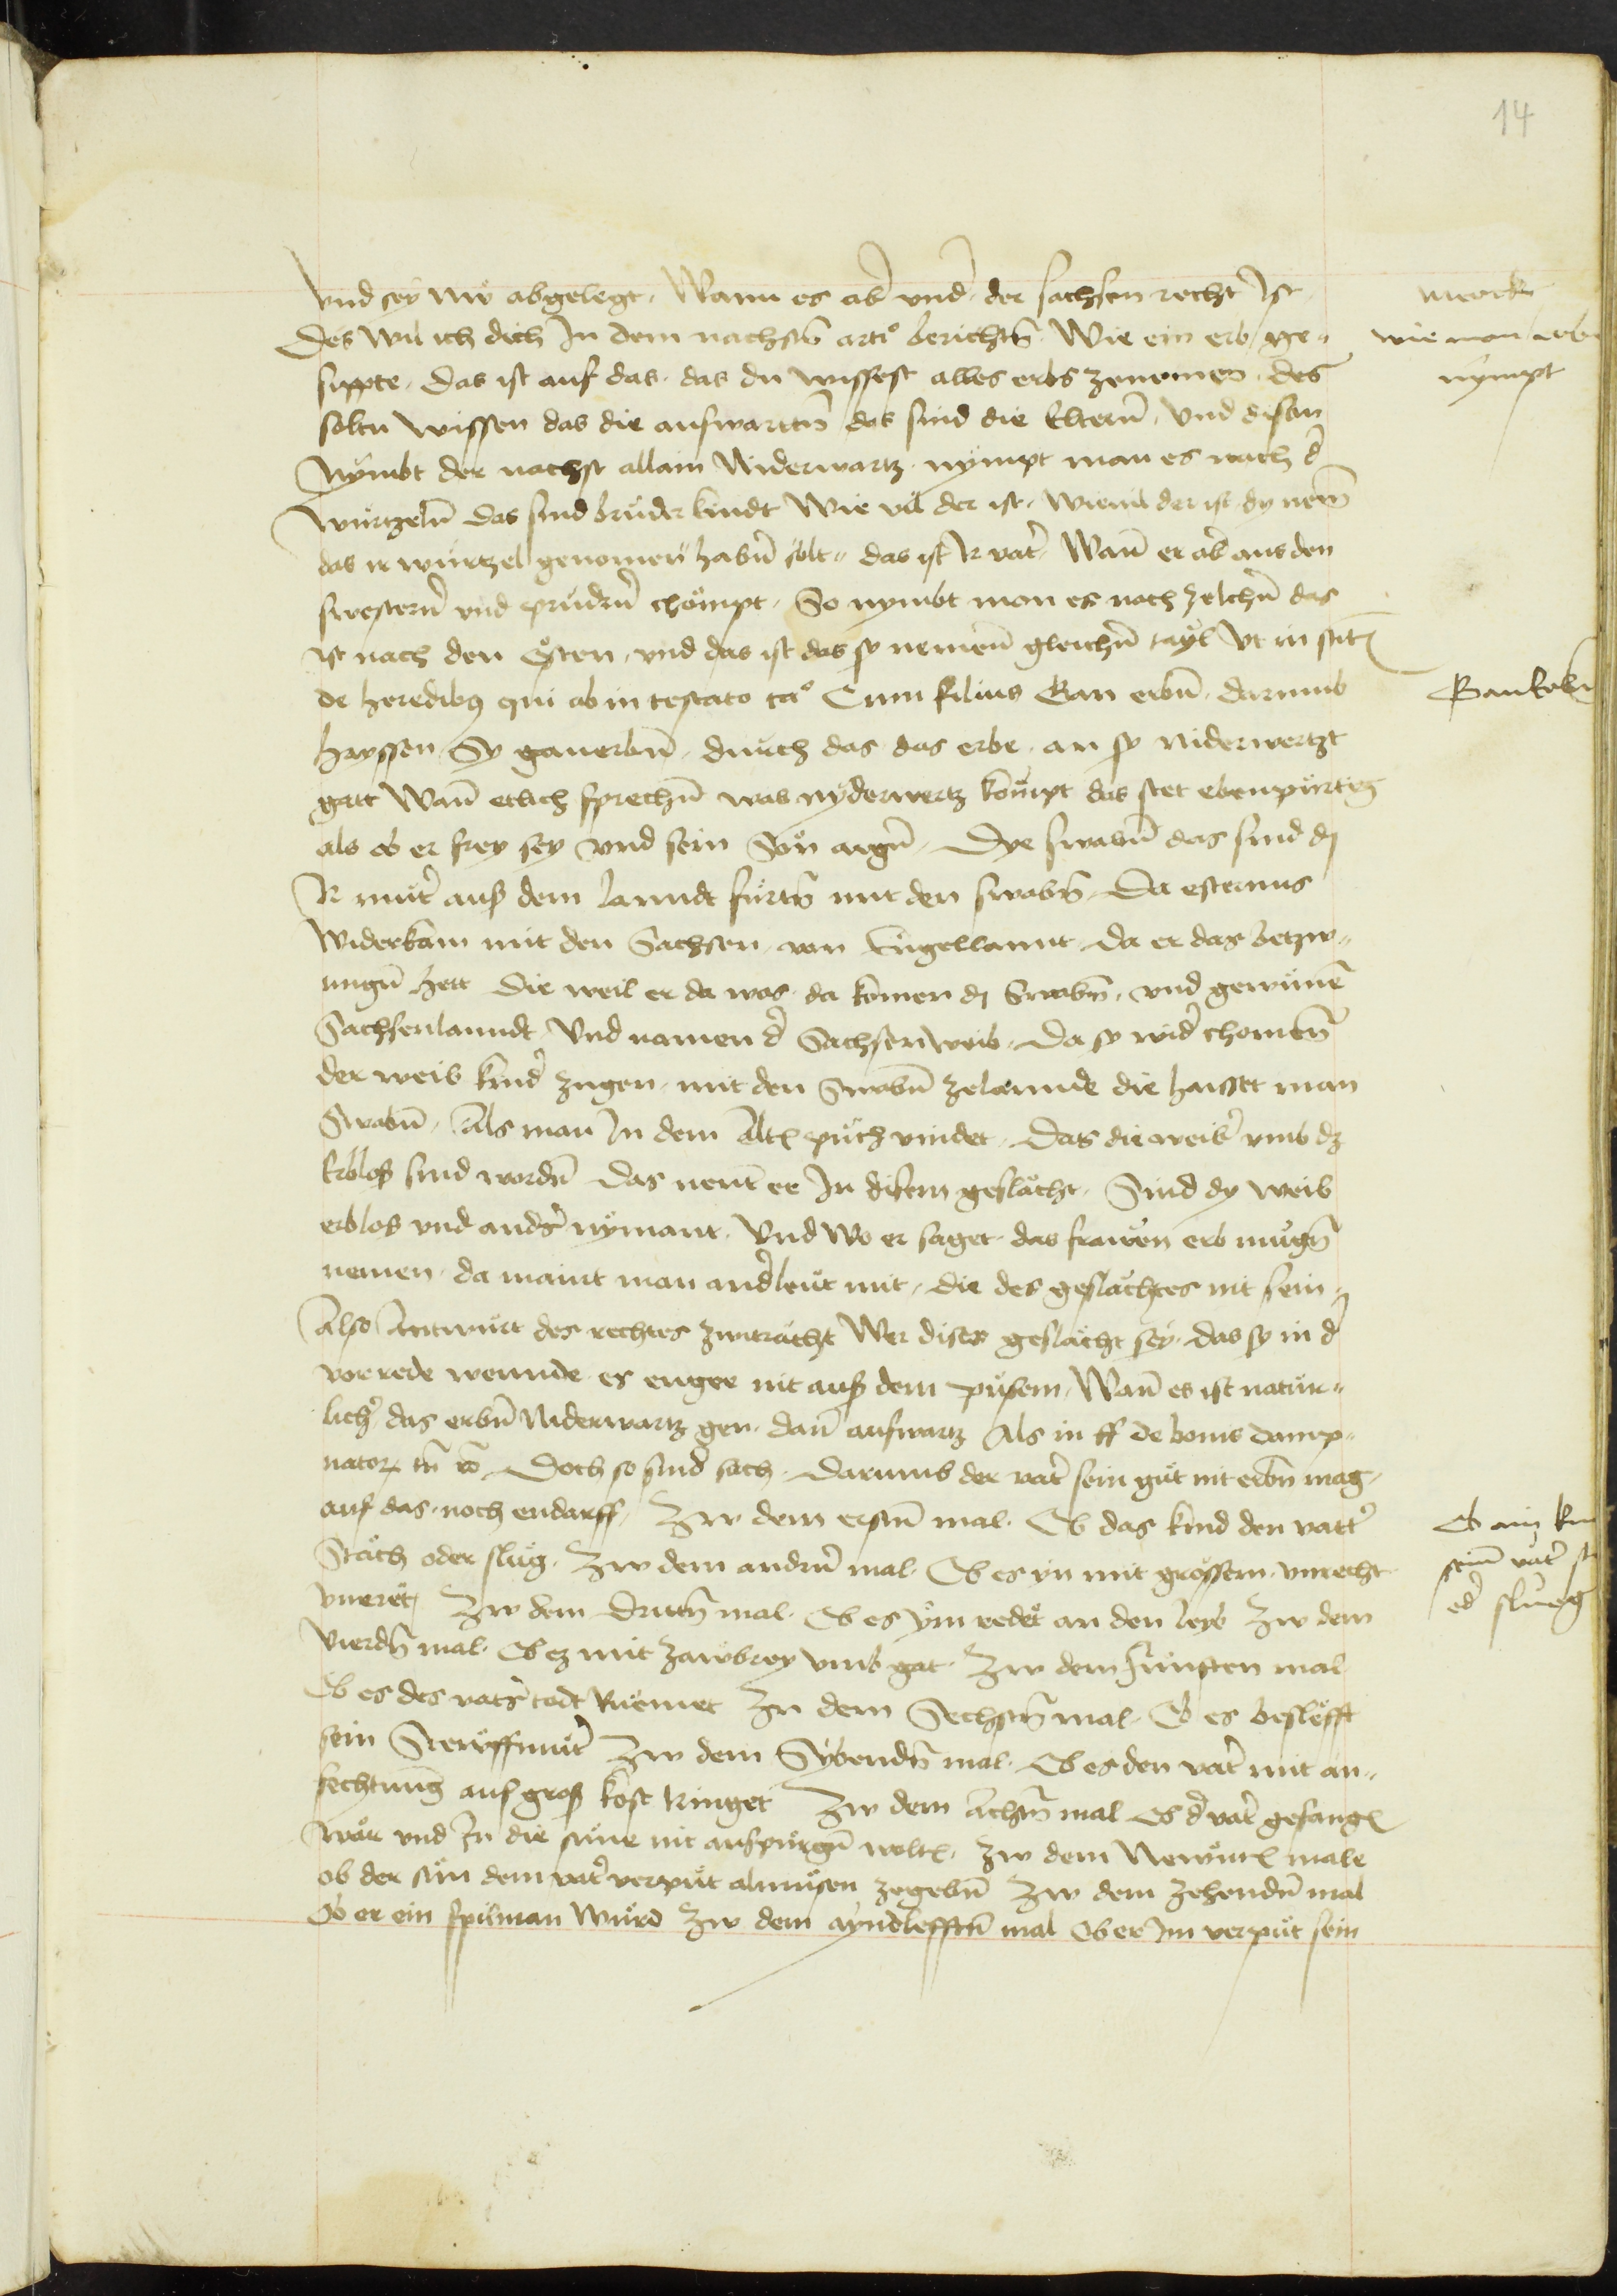 14
vnd sey nw abgelegt. Wann es ab' vnd' der sachsen recht Ist
Des wil ich dich In dem nachstn̄ artº berichtn̄ Wie ein erb ge„
sippte. das ist auf das. das du wissest alles erbs zenemen. des
soltu wissen das die aufwarttn̄ das sind die Elternn̄. vnd disen
Nymbt der nachst allain Niderwartz. nympt man es nach d'
würtzelnn̄ das sind bruder kindt Wie vil der ist. Wieuil der ist dy nem̄
das ir würtzel genomen habn̄ solt„ das ist Ir vat'. Wan̄ er ab' aus den
swesternn̄ vnd prudrn̄ chömpt. So nymbt man es nach zelchn̄ das
ist nach den Esten. vnd das ist das sy nemenn̄ gleichn̄ tayl Vt in
de heredibꝫ qui ab in testato Cum filius Gan erbn̄. darumb
hayssen Sy ganerbn̄. durch das das erbe. an sy niderwertzt
gatt Wan̄ etlich sprechn̄ was nyderwertz kömpt das stet ebenpürtig
als ob er frey sey vnd sein Sön aygn̄. Dye swabn̄ das sind dj
Ir mut' auß dem lanndt fürtn̄ mit den swabn̄. Da esternus
widerkam mit den Sachsen. von Engellannt. da er das betzw„
ungn̄ hett die weil er da was. da komen dj Swabn̄. vnd gewunē
Sachsenlanndt Vnd namen d' Sachsen weib. Da sy wid' chomenn̄
der weib kind' zugen. mit den Swabn̄ zelannde die haisset man
Swabn̄. Als man In dem Alt puch vindet. Das die weib' vmb dz
Erblos sind wordn̄ das nent er In disem geslächt. Sind dy weib
erblos vnd ands' nymant. Vnd wo er saget. das frawen erb mugn̄
nemen. da maint man and'leut mit. die des geslächtes nit sein„
Also Antwurt des rechtes zwiträcht Wer dises geslächt sey. das sy in d'
vorrede wennde. es engee nit auß dem pusem. Wan̄ es ist natur„
lich' das erbn̄ Niderwartz gen. dan̄ aufwartz Als in ff de bonis damp„
nator. Doch so sind sach. darumb der vat' sein gut nit erbn̄ mag.
auf das. noch endarff. Zw dem erstn̄ mal. Ob das kind den vatt'
Stäch oder slug. Zw dem andrn̄ mal. Ob es yn mit grossem vnrecht
vneret Zw dem Drittn̄ mal. Ob es ym redet an den leyb Zw dem
vierdn̄ mal. Ob ez mit zawbrey vmb gat. Zw dem fünften mal
Ob es des vats' todt Ruemet Zu dem Sechstn̄ mal. Ob es besleft
sein Stewffmut' Zw dem Sybendn̄ mal. Ob es den vat' mit an„
fechtung auf groß kost bringet Zw dem Achstn̄ mal Ob d' vat' gefang
wär vnd In die sune nit aufpurgn̄ wolt. Zw dem Newnt male
ob der sun dem vat' verput almusen zegebn̄ Zw dem zehendn̄ mal
Ob er ein spilman wurd Zw dem ayndlefftn̄ mal Ob er Im verput sein
Merck
wie man erb
nympt
Ganerbn
Ob ain
seim̄ vat'
od' slueg